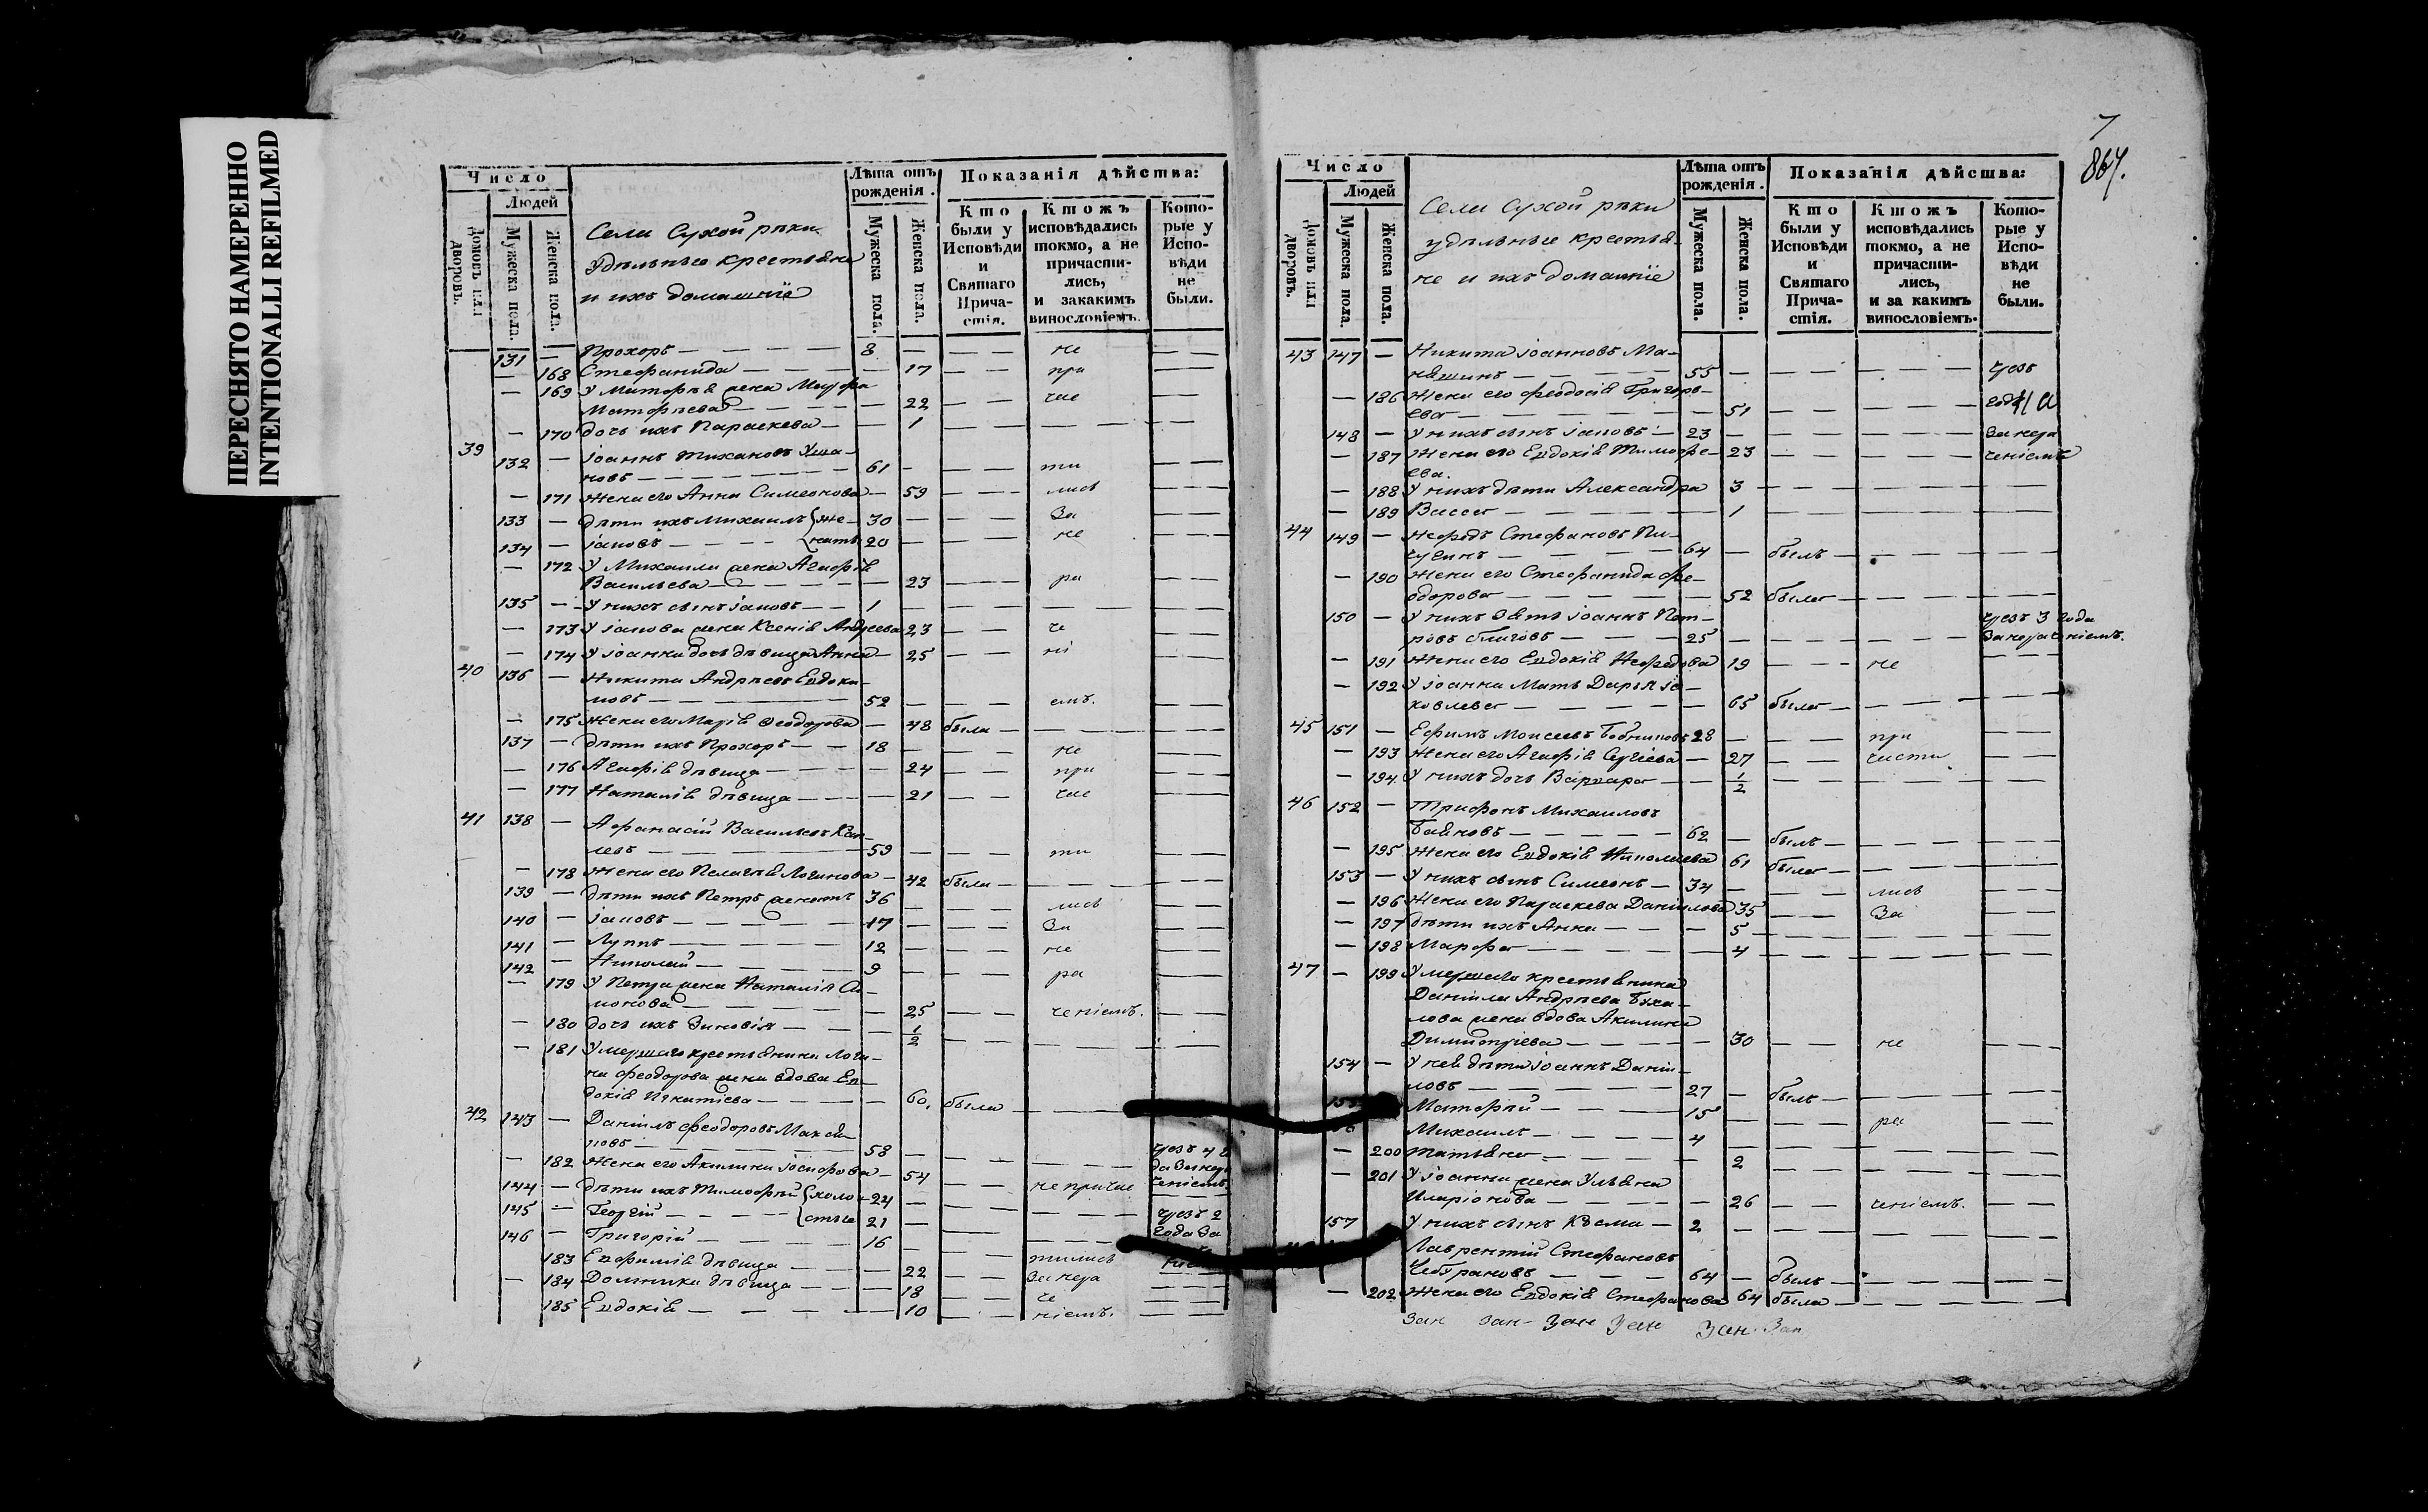 ПЕРЕСНЯТО НАМЕРЕННО
INTENTIONALLI REFILMED
Число
Людей
Домовъ или дворовъ.
Мужеска пола.
Женска пола.
Села Сухой рѣки
удѣльные крестьяне
и ихъ домашніе
Лѣта отъ рожденія.
Мужеска пола.
Женска пола.
Показанія дѣйства:
Кто были у Исповѣди и Святаго Прича-стія.
Ктожъ исповѣдались токмо, а не причасти-лись, и закакимъ винословіемъ.
Кото-рые у Испо-вѣди не были.
131 — Прохоръ — 8 — не
— 168 Стефанида — 17 — при
— 169 У Матфѣя жена Мавра
Матфѣева — 22 — чис
— 170 дочь ихъ Параскева — 1
39 132 — Іоаннъ Тихановъ Уша-
ковъ — 61 — ти
— 171 Жена его Анна Симеонова — 59 — лись
133 — дѣти ихъ Михаилъ {же- 30 — За
134 — Іаковъ — {наты 20 — не
— 172 У Михаила жена Агафія
Васильева — 23 — ра
135 — У нихъ сынъ Іаковъ — 1
— 173 У Іакова жена Ксенія Андреева 23 — че
— 174 У Іоанна дочь дѣвица Анна — 25 — ні
40 136 — Никита Андрѣевъ Евдоки-
мовъ — 52 — емъ.
— 175 Жена его Марія Феодорова — 48 была
137 — дѣти ихъ Прохоръ — 18 — не
— 176 Агафія дѣвица — 24 — при
— 177 Наталія дѣвица — 21 — час
41 138 — Афанасій Васильевъ
59 — ти
— 178 Жена его Пелагѣя Логинова — 42 была
139 — дѣти ихъ Петръ женатъ 36 — лись
140 — Іаковъ — 17 — За
141 — Луппъ — 12 — не
142 — Николай — 9 — ра
— 179 У Петра жена Наталія
25 — ченіемъ.
— 180 дочь ихъ Зиновія — 1/2
— 181 Умершаго крестьянина Логи-
на Феодорова жена вдова Ев-
докія Игнатіева — 60. была
42 143 — Даніилъ Феодоровъ
58 — чрезъ 4 г
— 182 Жена его Акилина Іосифова — 54 — да за нера
144 — дѣти ихъ Тимофѣй {холо- 24 — не причас ченіемъ
145 — Георгій — {стые 21 — чрезъ 2
146 — Григорій — 16 — года За
183 Евфимія дѣвица — 22 — тились
— 184 Домника дѣвица — 18 — За нера
185 Евдокія — 10 — че ніемъ.
7
867.
Число
Людей
Домовъ или дворовъ.
Мужеска пола.
Женска пола.
Села Сухой рѣки
удѣльные крестья-
не и ихъ домашніе
Лѣта отъ рожденія.
Мужеска пола.
Женска пола.
Показанія дѣйства:
Кто были у Исповѣди и Святаго Прича-стія.
Ктожъ исповѣдались токмо, а не причасти-лись, и за какимъ винословіемъ.
Кото-рые у Испо-вѣди не были.
43 147 — Никита Іоанновъ Ма-
няшинъ — 55 — чрезъ
— 186 Жена его Феодосія Григорь-
ева — 51
148 — У нихъ сынъ Іаковъ — 23 — За нера
— 187 Жена его Евдокія Тимофе- 23 — ченіемъ
ева.
— 188 У нихъ дѣти Александра 3
— 189 Васса — 1
44 149 — Нефедъ Стефановъ Пи-
чугинъ — 64 — былъ
— 190 Жена его Стефанида Фе-
одорова — 52 была
150 — У нихъ зять Іоаннъ Пет-
ровъ — 25 — чрезъ 3 года За нераченіемъ.
— 191 Жена его Евдокія Нефедова 19 — не
— 192 У Іоанна Мать Дарья Іа-
ковлева — 65 была
45 151 — Ефимъ Моисеевъ 28 — при
— 193 Жена его Агафія Сергіева — 27 — части
— 194. У нихъ дочь Варвара — 1/2
46 152 — Трифонъ Михаиловъ
Баяновъ — 62 — былъ
— 195 Жена его Евдокія Николаева 61 была
153 — У нихъ сынъ Симеонъ — 34 — лись
— 196 Жена его Параскева Даніилова 35 — За
— 197 дѣти ихъ Анна — 5
— 198 Марфа — 4
47 — 199 Умершаго крестьянина
Даніила Андрѣева Бука-
лова жена вдова Акилина
Димитріева — 30 — не
154 — У нея дѣти Іоаннъ Даніи-
ловъ — 27 — былъ
155 Матфѣй — 15 — ра
Михаилъ — 4
— 200 Татьяна — 2
— 201 У Іоанна жена Ульяна
Иларіонова — 26 — ченіемъ.
157 У нихъ сынъ Козма — 2
Лаврентій Стефановъ
64 — былъ
— 202 Жена его Евдокія Стефанова 64 была
Зан Зан- Зан Зан Зан. Зан